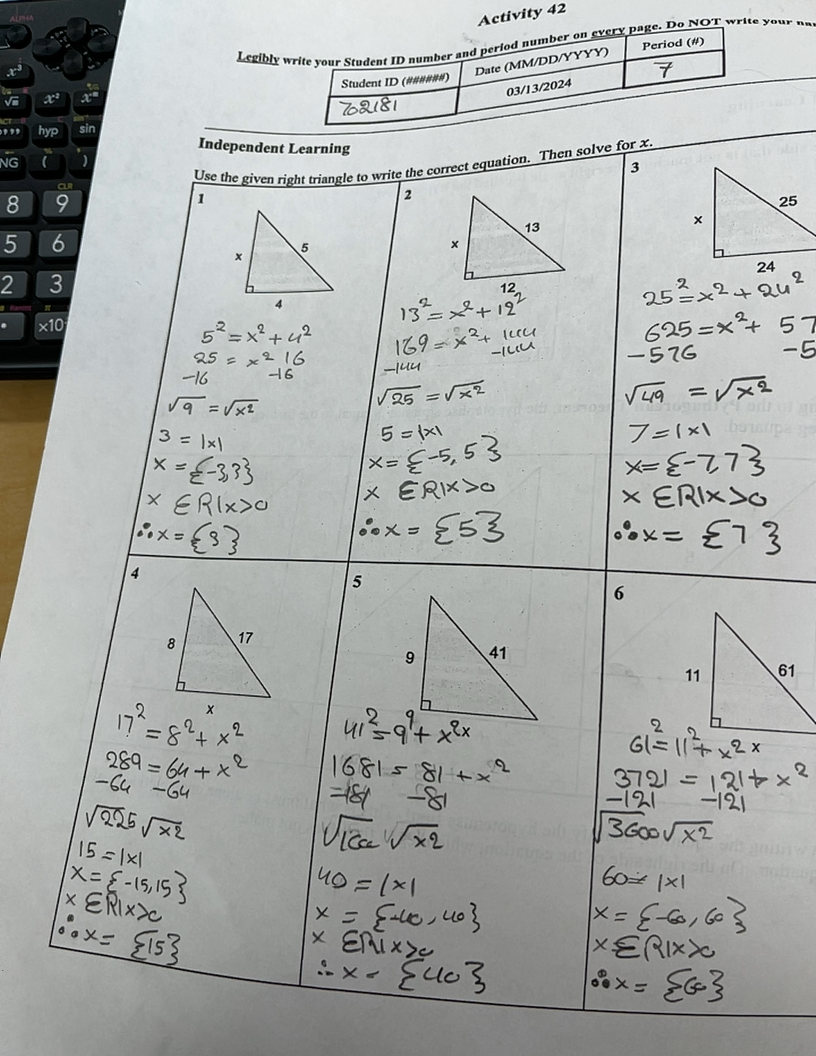 ALPHA
x³
√■ x² x■
hyp sin
NG ( )
CLR
8 9
5 6
2 3
• ×10
Activity 42
Legibly write your Student ID number and period number on every page. Do NOT write your
Student ID (######) Date (MM/DD/YYYY) Period (#)
702181 03/13/2024 7
Independent Learning
Use the given right triangle to write the correct equation. Then solve for x.
1
x 5
4
5² = x² + 4²
25 = x² 16
-16 -16
√9 = √x²
3 = |x|
x = {-3,3}
x ∈R|x>0
∴x = {3}
2
x 13
12
13² = x² + 12²
169 = x² + 144
-144 -144
√25 = √x²
5 = |x|
x = {-5, 5}
x ∈R|x>0
∴x = {5}
3
x 25
24
25² = x² + 24²
625 = x² + 57
-576 -5
√49 = √x²
7 = |x|
x = {-7,7}
x ∈R|x>0
∴x = {7}
4
8 17
x
17² = 8² + x²
289 = 64 + x²
-64 -64
√225 √x2
15 = |x|
x = {-15,15}
x ∈R|x>0
∴x = {15}
5
9 41
x
41² = 9⁹ + x²
1681 = 81 + x²
-81
√x2
40 = |x|
x = {-40, 40}
x ∈R|x>0
∴x = {40}
6
11 61
x
61² = 11² + x²
3721 = 121 + x²
-121 -121
√3600 √x2
60 = |x|
x = {-60, 60}
x ∈R|x>0
∴x = {60}